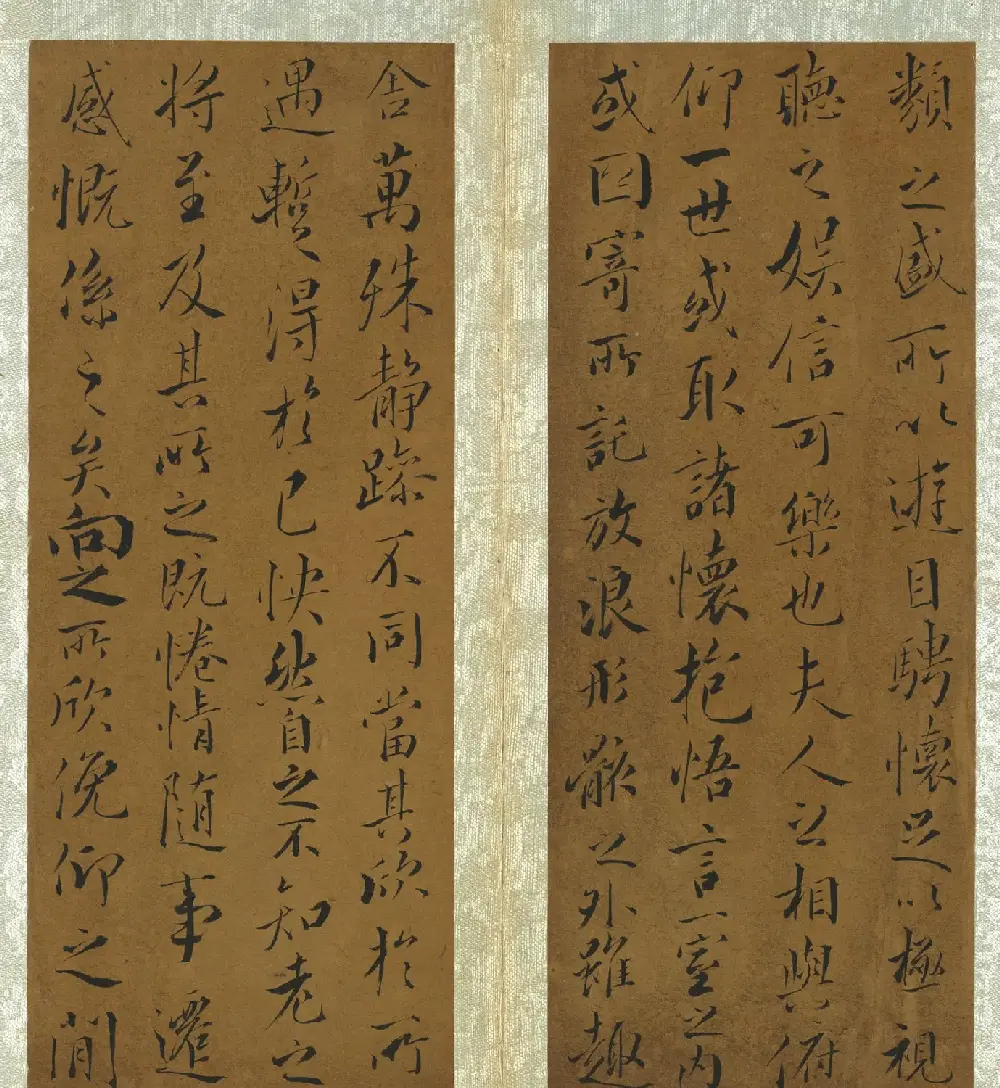 類之盛所以遊目騁懷足以極視
聽之娛信可樂也夫人之相與俯
仰一世或取諸懷抱悟言一室之內
或因寄所託放浪形骸之外雖趣
舍萬殊靜躁不同當其欣於所
遇暫得於己怏然自足不知老之
將至及其所之既惓情隨事遷
感慨係之矣向之所欣俛仰之閒